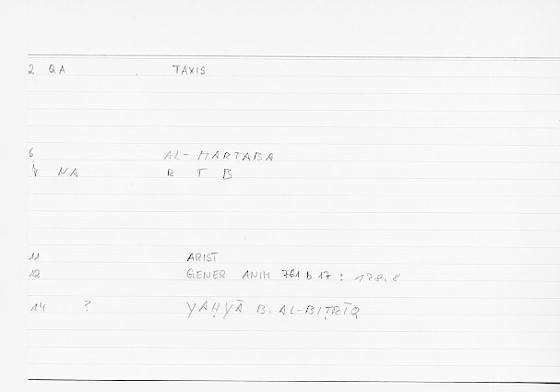 2 QA TAXIS
6 AL-MARTABA
V NA R T B
11 ARIST
12 GENER ANIM 761 b 17 : 178.8
14 ? YAḤYĀ B. AL-BIṬRĪQ